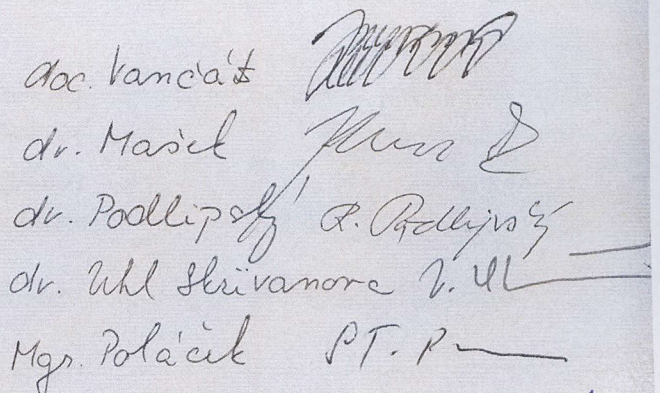 doc. Vančát
dr. Mašek
dr. Podlipský R. Podlipský
dr. Uhl Skřivanova V. Uhl
Mgr. Poláček ST. P